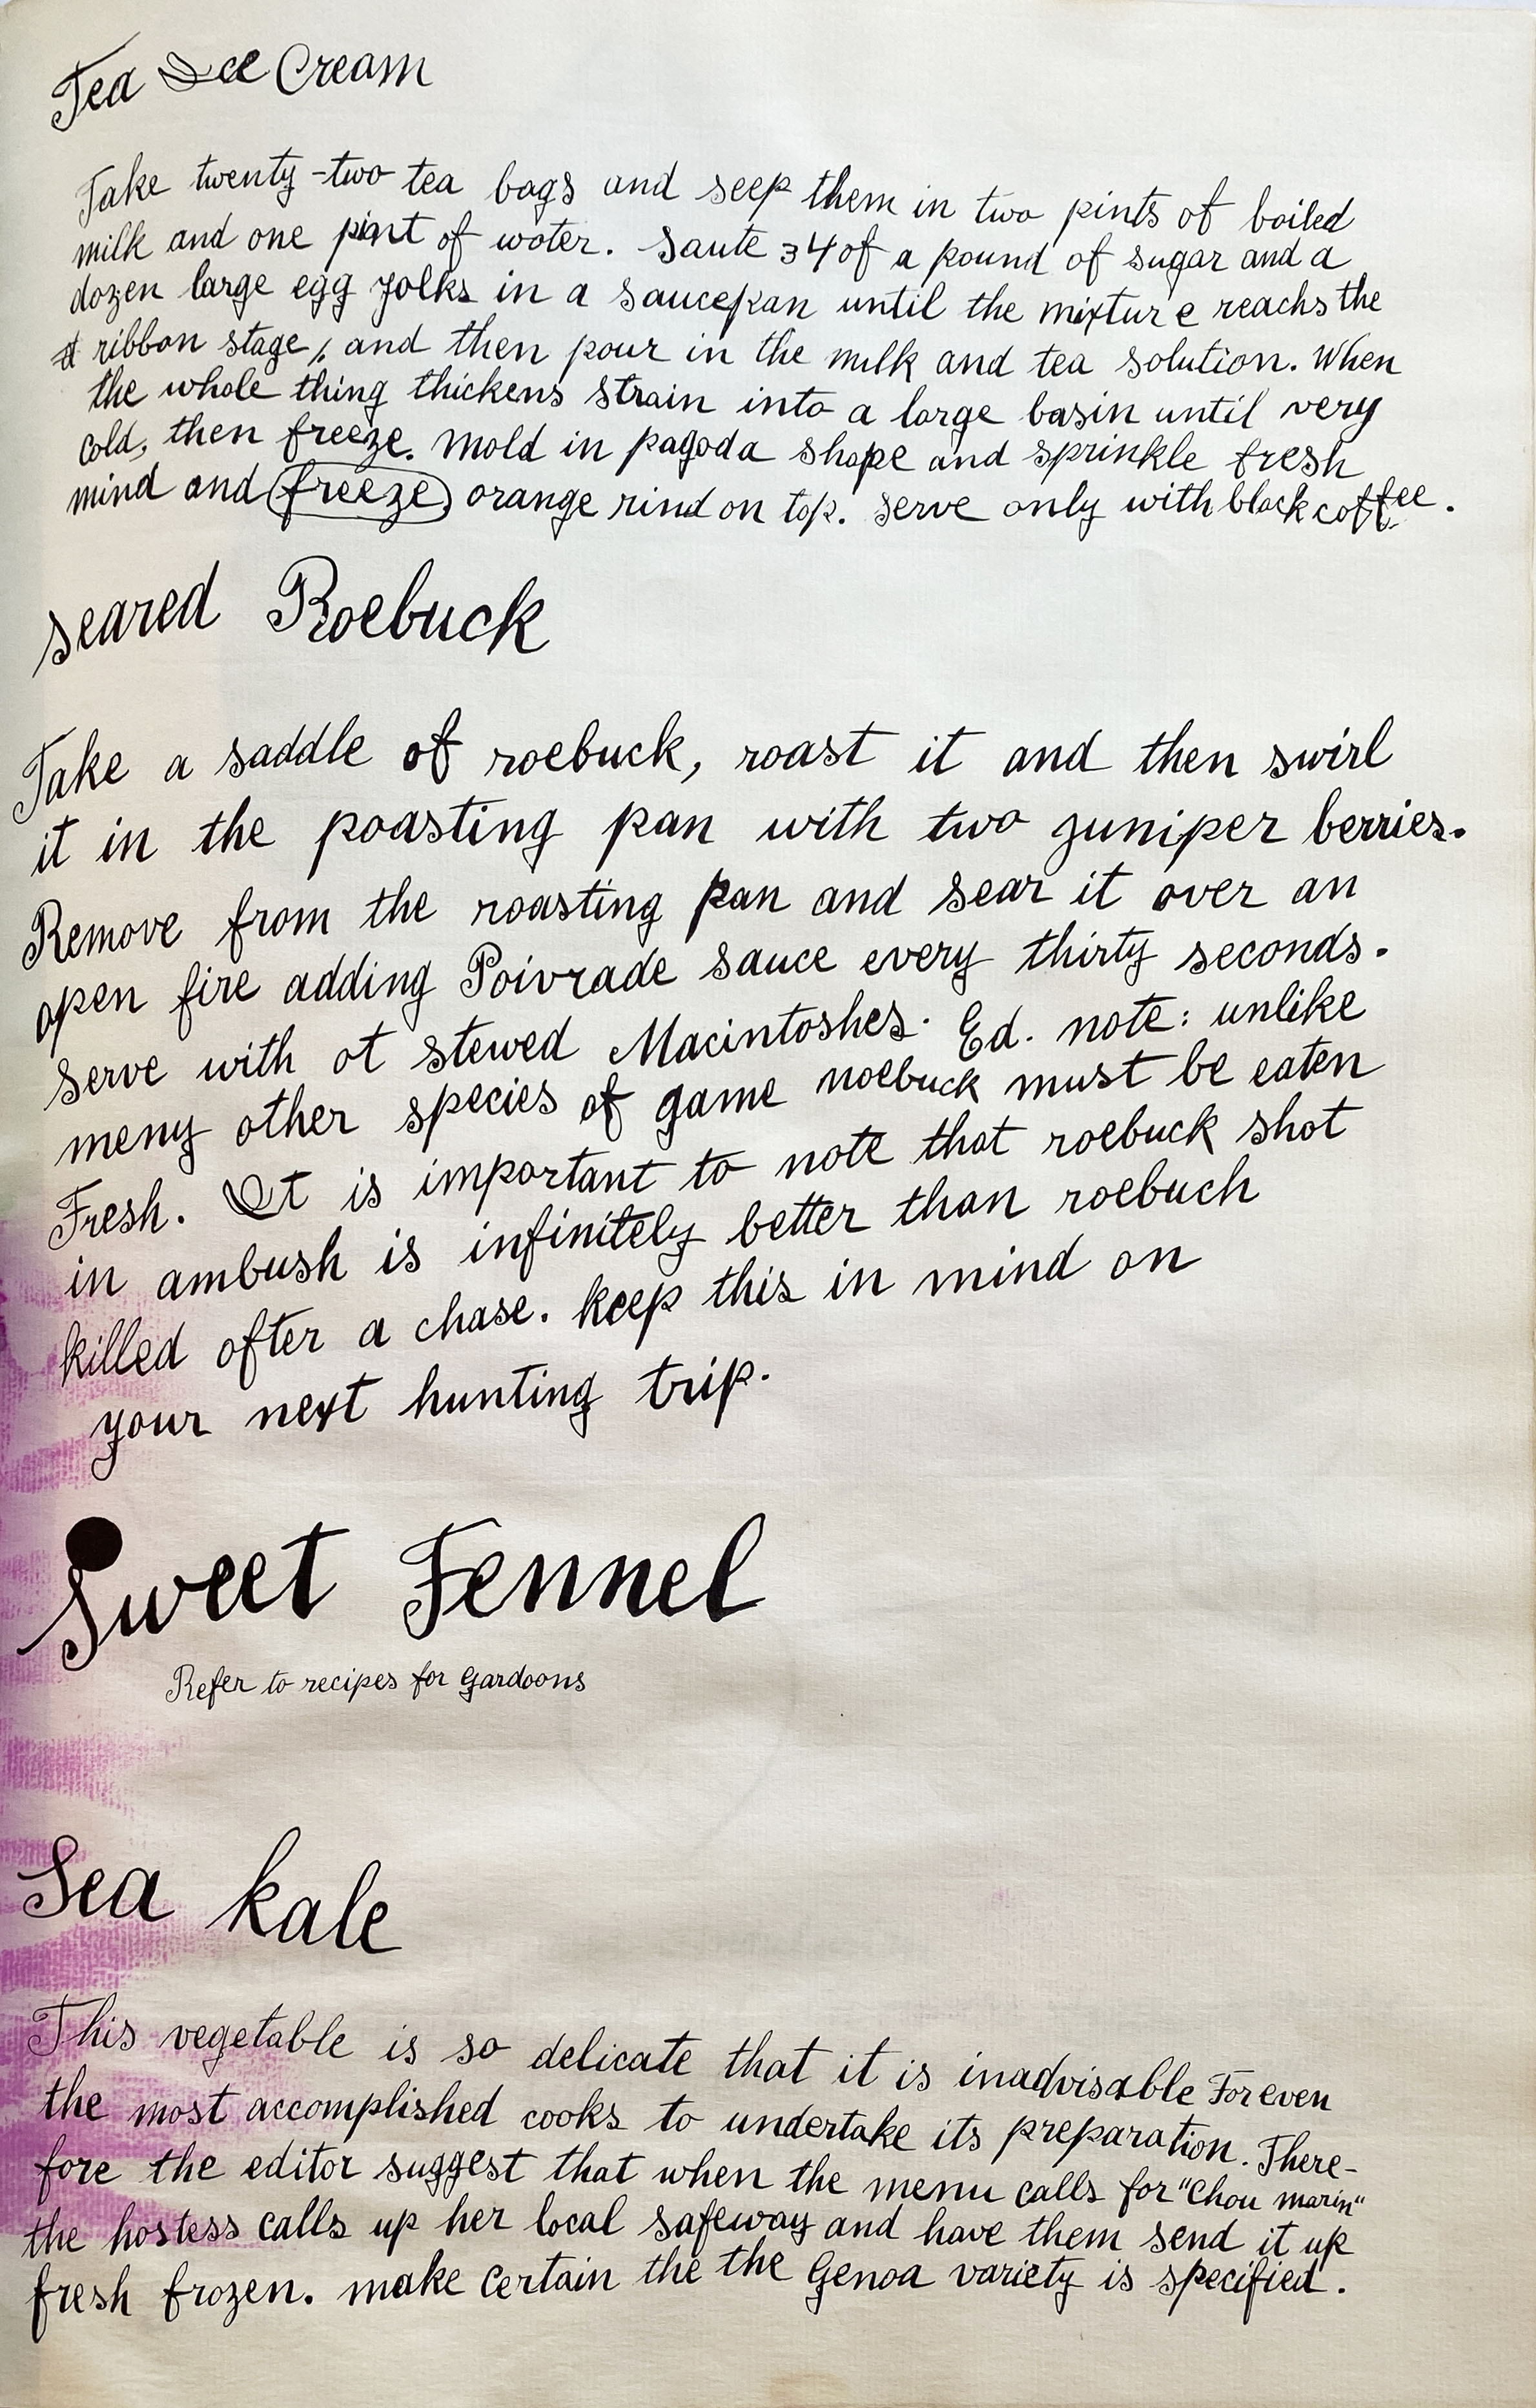 Tea Ice Cream
Take twenty-two tea bags and seep them in two pints of boiled
milk and one pint of water. Saute 34 of a pound of sugar and a
dozen large egg yolks in a saucepan until the mixture reachs the
ribbon stage, and then pour in the milk and tea solution. When
the whole thing thickens strain into a large basin until very
cold, then freeze. Mold in pagoda shape and sprinkle fresh
mind and freeze orange rind on top. Serve only with black coffee.
Seared Roebuck
Take a saddle of roebuck, roast it and then swirl
it in the poasting pan with two juniper berries.
Remove from the roasting pan and sear it over an
open fire adding Poivrade sauce every thirty seconds.
Serve with ot stewed Macintoshes. Ed. note: unlike
meny other species of game noebuck must be eaten
Fresh. It is important to note that roebuck shot
in ambush is infinitely better than roebuch
killed after a chase. keep this in mind on
your next hunting trip.
Sweet Fennel
Refer to recipes for Gardoons
Sea kale
This vegetable is so delicate that it is inadvisable For even
the most accomplished cooks to undertake its preparation. There-
fore the editor suggest that when the menu calls for "Chou marin"
the hostess calls up her local safeway and have them send it up
fresh frozen. make certain the the Genoa variety is specified.